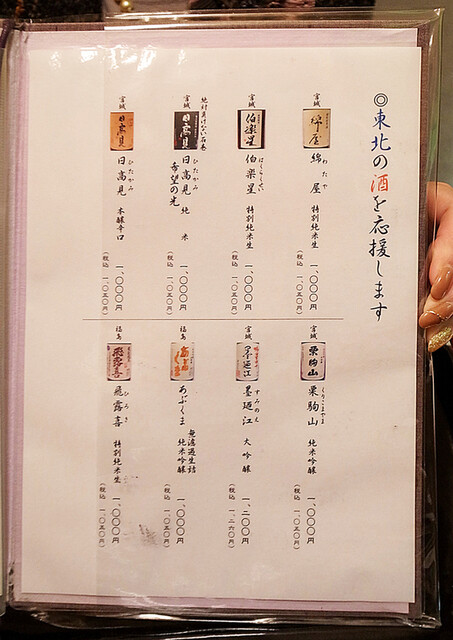 ◎東北の酒を応援します
宮城
綿屋
わたや
綿屋 特別純米生
一、〇〇〇円
(税込 一、〇五〇円)
宮城
伯楽星
はくらくせい
伯楽星 特別純米生
一、〇〇〇円
(税込 一、〇五〇円)
絶対負けない石巻
宮城
日高見
ひたかみ
日高見 純米
希望の光
一、〇〇〇円
(税込 一、〇五〇円)
宮城
日高見
ひたかみ
日高見 本醸辛口
一、〇〇〇円
(税込 一、〇五〇円)
宮城
栗駒山
くりこまやま
栗駒山 純米吟醸
一、〇〇〇円
(税込 一、〇五〇円)
宮城
墨廼江
すみのえ
墨廼江 大吟醸
一、二〇〇円
(税込 一、二六〇円)
福島
あぶくま
あぶくま 無濾過生詰
純米吟醸
一、〇〇〇円
(税込 一、〇五〇円)
福島
飛露喜
ひろき
飛露喜 特別純米生
一、〇〇〇円
(税込 一、〇五〇円)